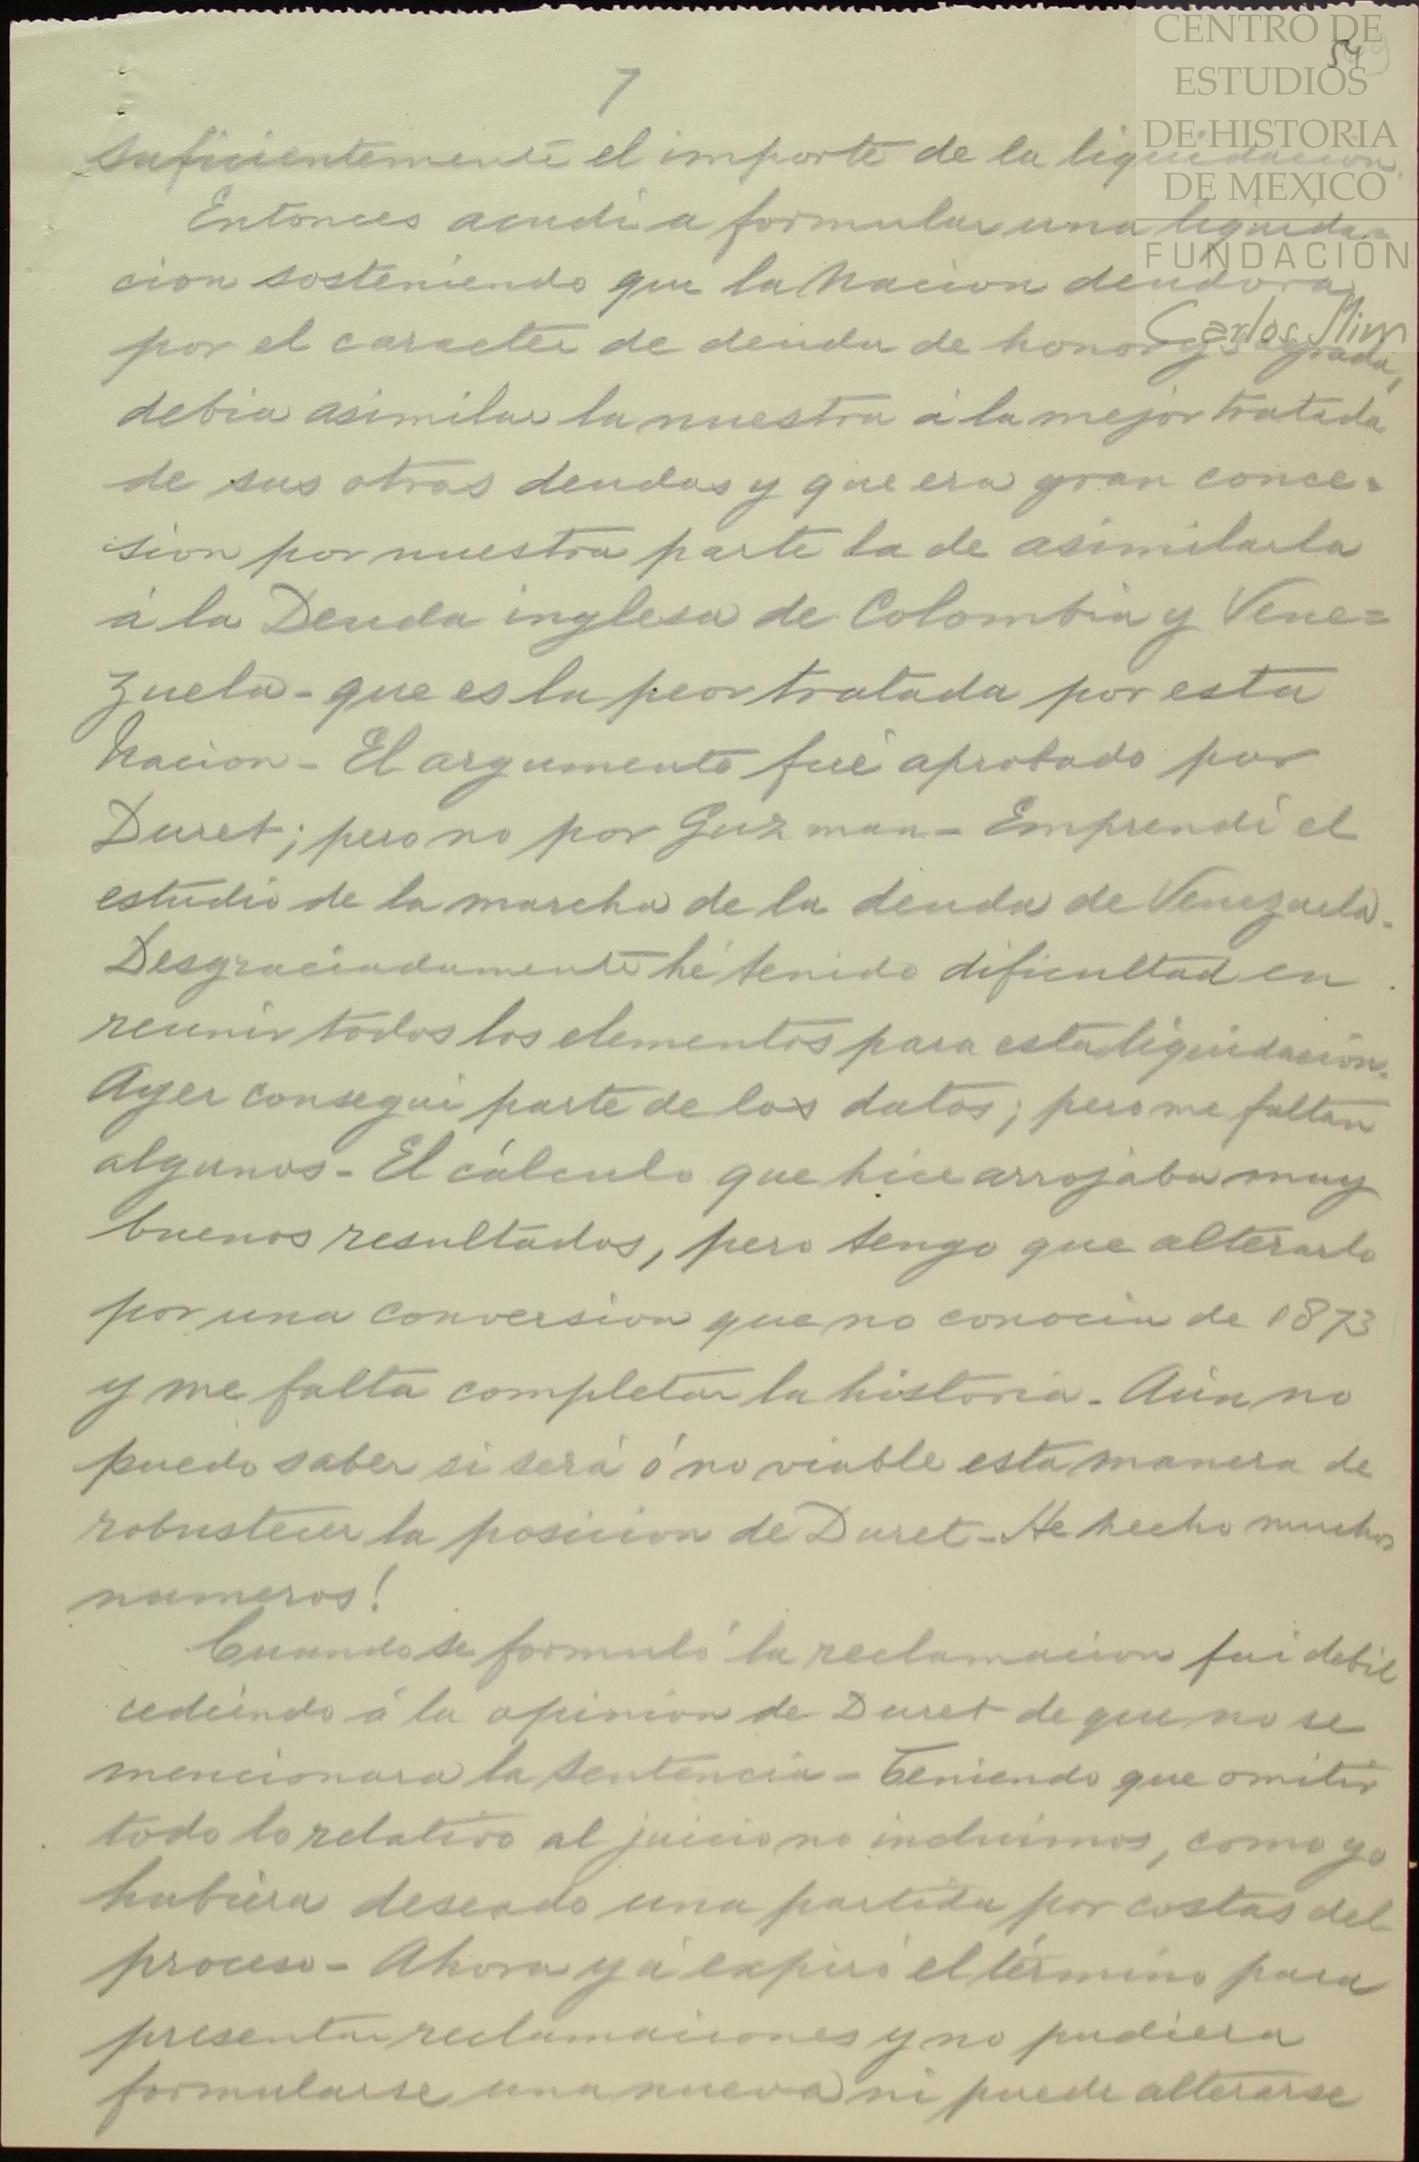 CENTRO DE
ESTUDIOS
DE HISTORIA
DE MEXICO
FUNDACIÓN
Carlos Slim
54
7
suficientemente el importe de la liquidacion.
Entonces acudí a formular una liquida=
cion sosteniendo que la Nacion deudora,
por el caracter de deuda de honor y sagrada,
debia asimilar la nuestra á la mejor tratada
de sus otras deudas y que era gran conce=
sion por nuestra parte la de asimilarla
á la Deuda inglesa de Colombia y Vene=
zuela - que es la peor tratada por esta
Nacion - El argumento fué aprobado por
Duret; pero no por Guzman - Emprendí el
estudio de la marcha de la deuda de Venezuela -
Desgraciadamente hé tenido dificultad en
reunir todos los elementos para esta liquidación.
Ayer conseguí parte de los datos; pero me faltan
algunos - El cálculo que hice arrojaba muy
buenos resultados, pero tengo que alterarlo
por una conversion que no conocia de 1873
y me falta completar la historia - Aún no
puedo saber si será ó no viable esta manera de
robustecer la posicion de Duret - He hecho muchos
numeros!
Cuando se formuló la reclamacion fuí debil
cediendo á la opinion de Duret de que no se
mencionara la sentencia - Teniendo que omitir
todo lo relativo al juicio no incluimos, como yo
hubiera deseado una partida por costas del
proceso - Ahora yá expiró el término para
presentar reclamaciones y no pudiera
formularse una nueva ni puede alterarse